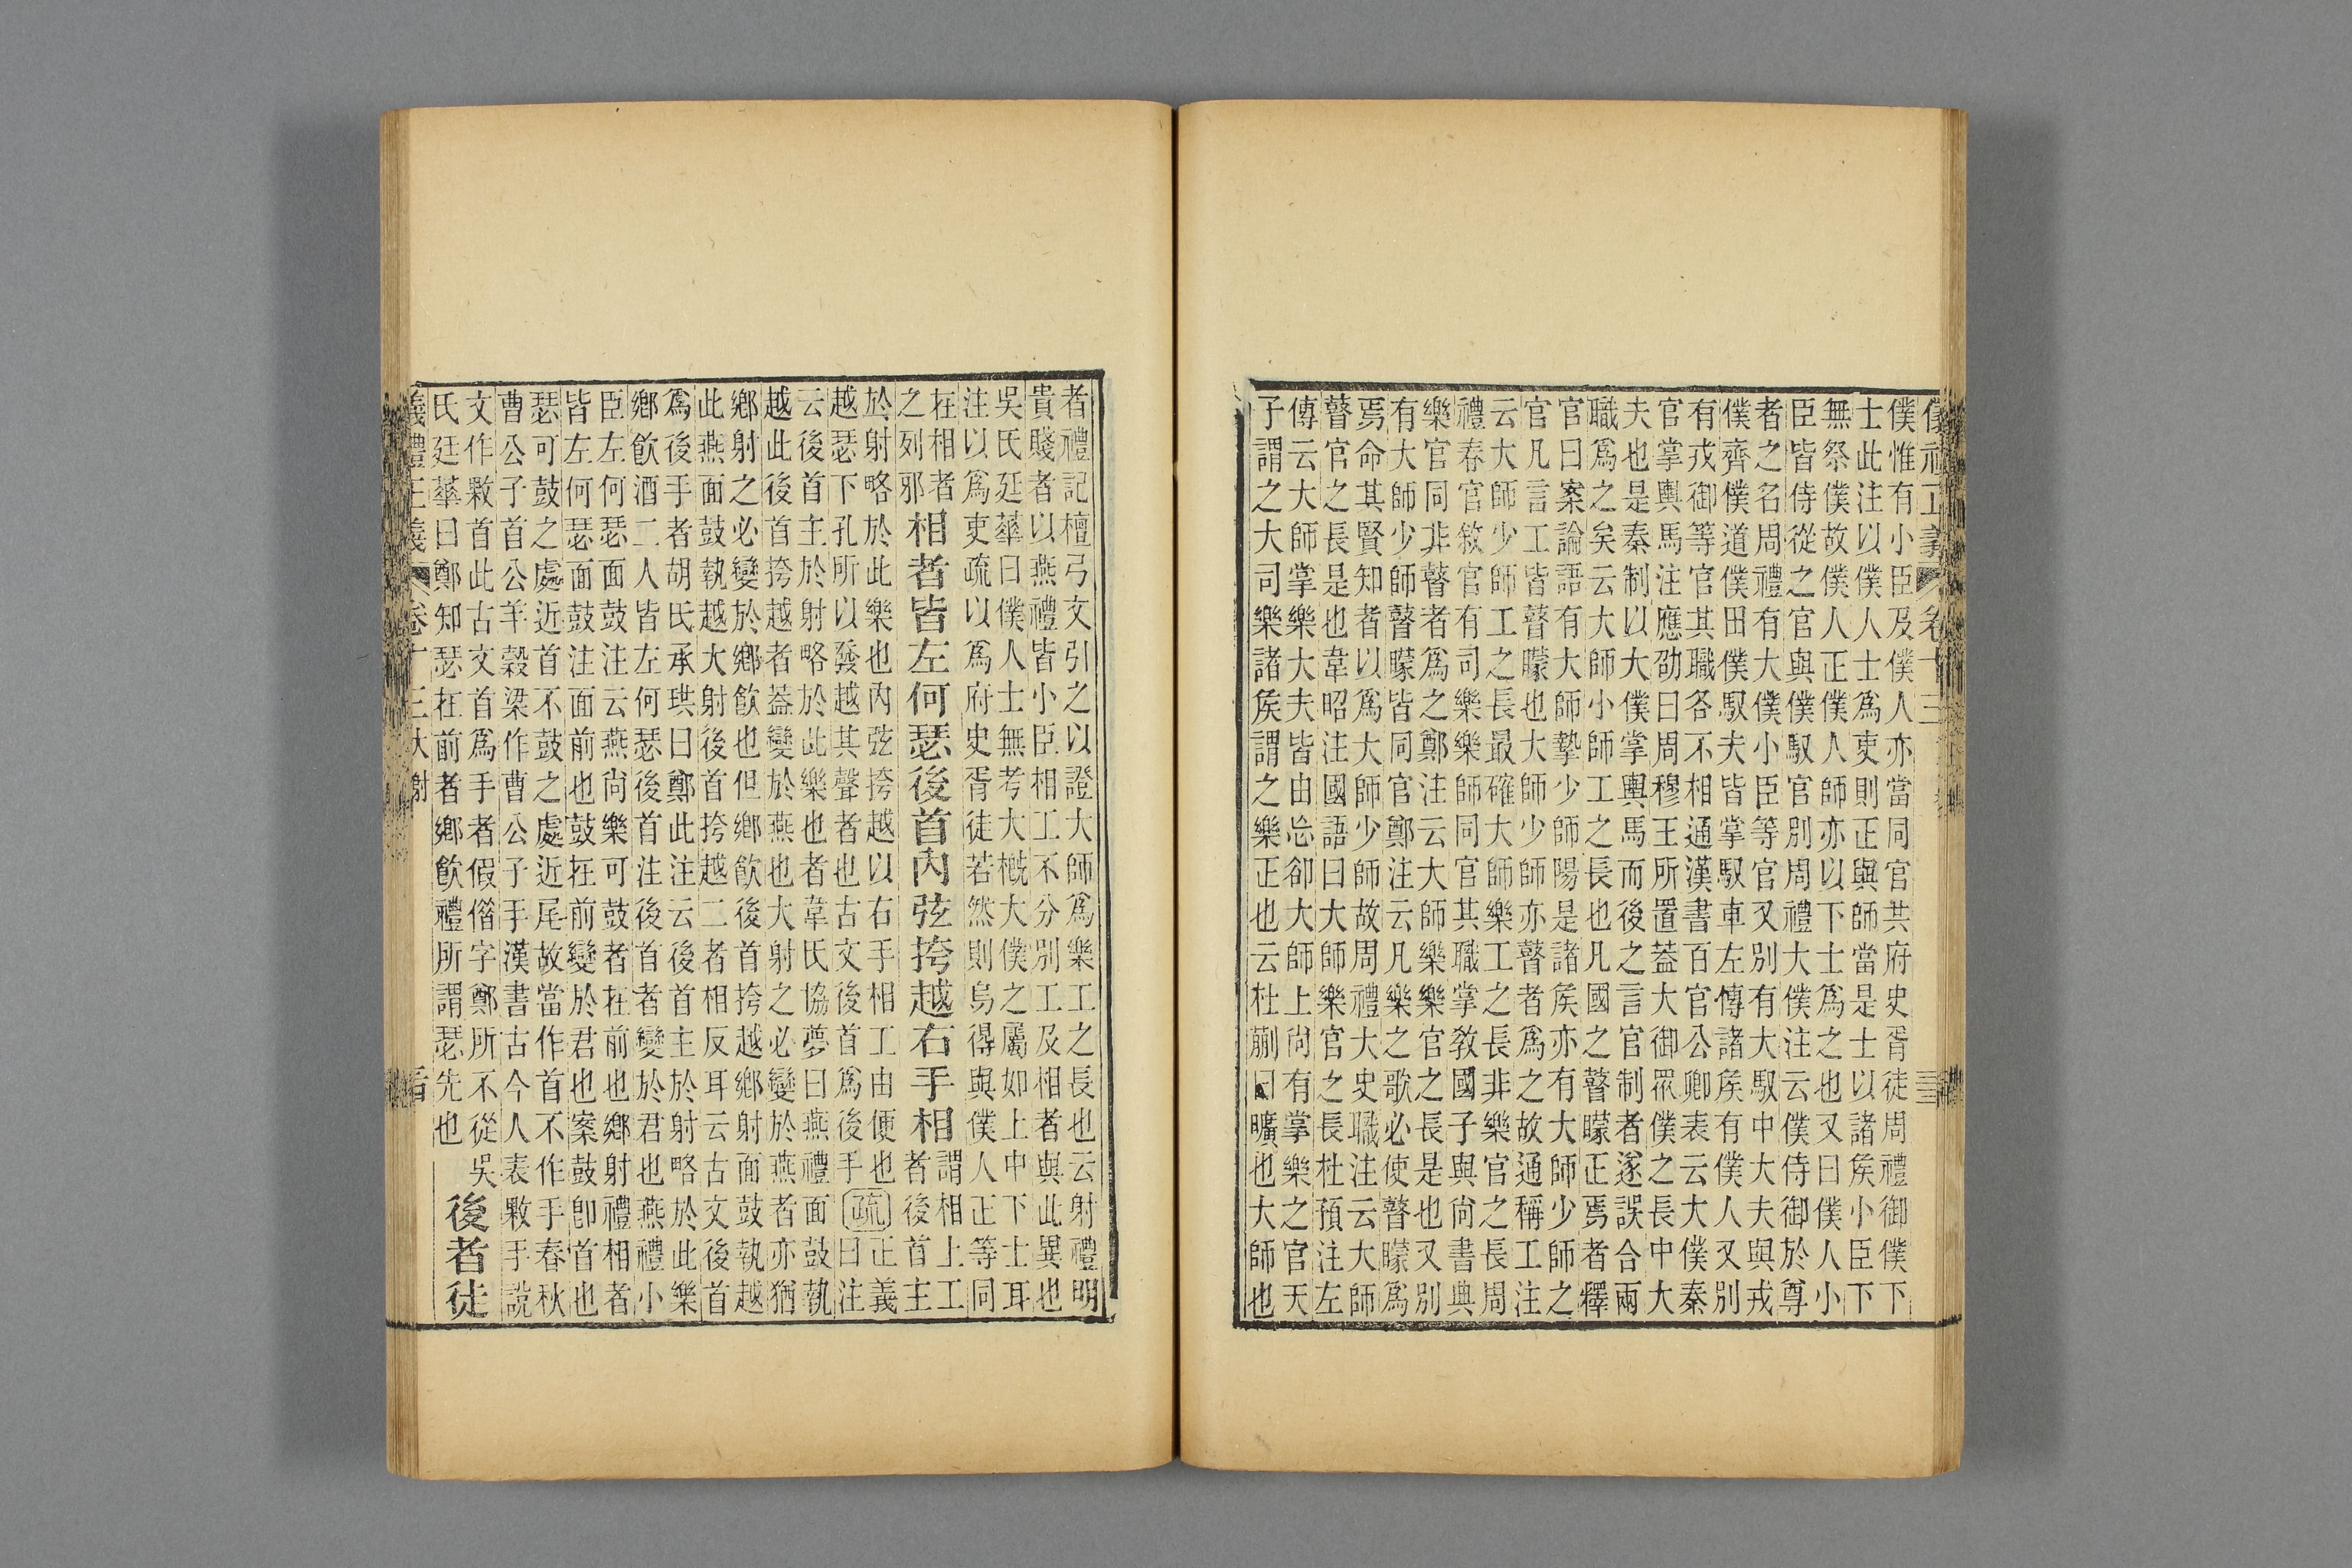 僕惟有小臣及僕人亦當同官共府史胥徒周禮御僕下
士此注以僕人士爲吏則正與師當是士以諸矦小臣下
無祭僕故僕人正僕人師亦以下士爲之也又曰僕人小
臣皆侍從之官與僕馭官別周禮大僕注云僕侍御於尊
者之名周禮有大僕小臣等官又別有大馭中大夫與戎
僕齊僕道僕田僕馭夫皆掌馭車左傳諸矦有僕人又別
有戎御等官其職各不相通漢書百官公卿表云大僕秦
官掌輿馬注應劭曰周穆王所置蓋大御眾僕之長中大
夫也是秦制以大僕掌輿馬而後之言官制者遂誤合兩
職爲之矣云大師小師工之長也凡國之瞽矇正焉者釋
官曰案論語有大師摯少師陽是諸矦亦有大師少師之
官凡言工皆瞽矇也大師少師亦瞽者爲之故通稱工注
云大師少師工之長最確大師樂工之長非樂官之長周
禮春官敘官有司樂樂師同官其職掌教國子與尚書典
樂官同非瞽者爲之鄭注云大師樂官之長是也又別
有大師少師瞽矇皆同官鄭注云凡樂之歌必使瞽矇爲
焉命其賢知者以爲大師少師故周禮大史職注云大師
瞽官之長是也韋昭注國語曰大師樂官之長杜預注左
傳云大師掌樂大夫皆由忘卻大師上尚有掌樂之官天
子謂之大司樂諸矦謂之樂正也云杜蒯曰曠也大師也
者禮記檀弓文引之以證大師爲樂工之長也云射禮明
貴賤者以燕禮皆小臣相工不分別工及相者與此異也
吳氏廷華曰僕人士無考大概大僕之屬如上中下士耳
注以爲吏疏以爲府史胥徒若然則烏得與僕人正等同
在相者之列邪相者皆左何瑟後首內弦挎越右手相謂相上工者後首主
於射略於此樂也內弦挎越以右手相工由便也正義
越瑟下孔所以發越其聲者也古文後首爲後手疏曰注
云後首主於射略於此樂也者韋氏協夢曰燕禮面鼓執
越此後首挎越者蓋變於燕也大射之必變於燕者亦猶
鄉射之必變於鄉飲也但鄉飲後首挎越鄉射面鼓執越
此燕面鼓執越大射後首挎越二者相反耳云古文後首
爲後手者胡氏承珙曰鄭此注云後首主於射略於此樂
鄉飲酒二人皆左何瑟後首注後首者變於君也燕禮小
臣左何瑟面鼓注云燕尚樂可鼓者在前也鄉射禮相者
皆左何瑟面鼓注面前也鼓在前變於君也案鼓卽首也
瑟可鼓之處近首不鼓之處近尾故當作首不作手春秋
曹公子首公羊穀梁作曹公子手漢書古今人表斁手說
文作斁首此古文首爲手者假借字鄭所不從吳
氏廷華曰鄭知瑟在前者鄉飲禮所謂瑟先也後者徒
義禮正義 卷十三 大射